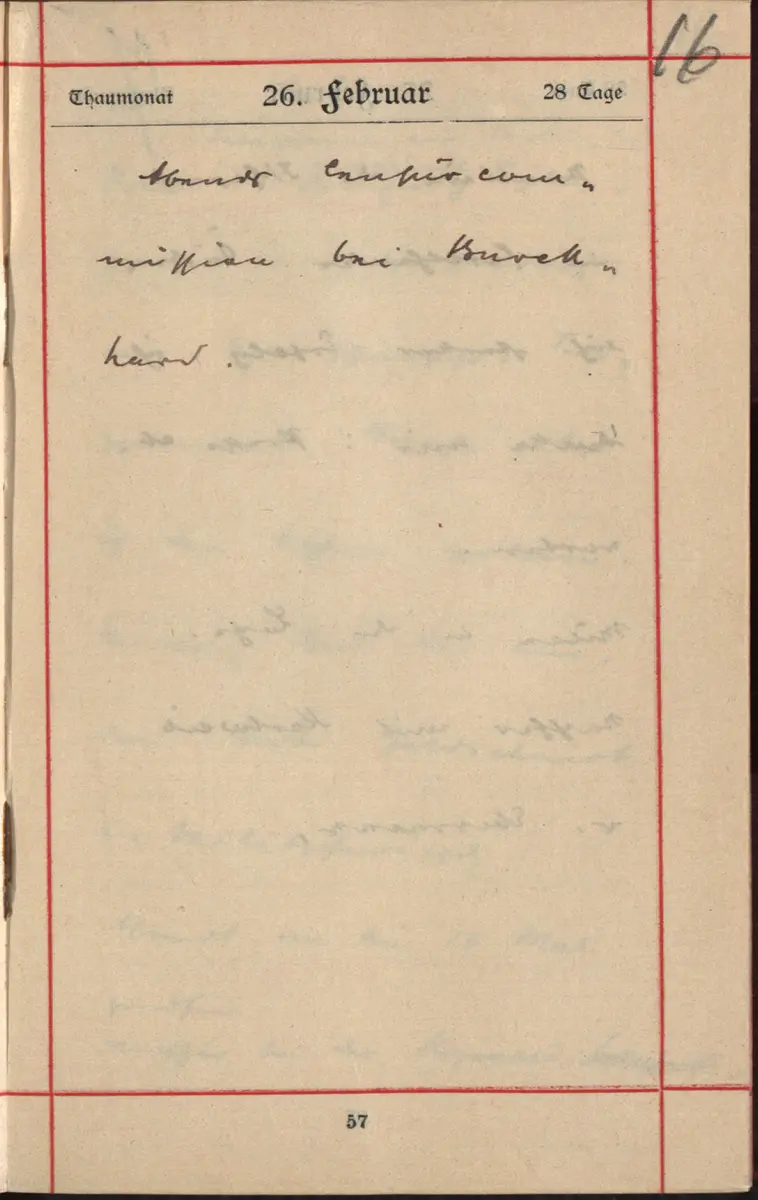 16
Thaumonat 26. Februar 28 Tage
Abends Censurcom„
mission bei Burck„
hard.
57